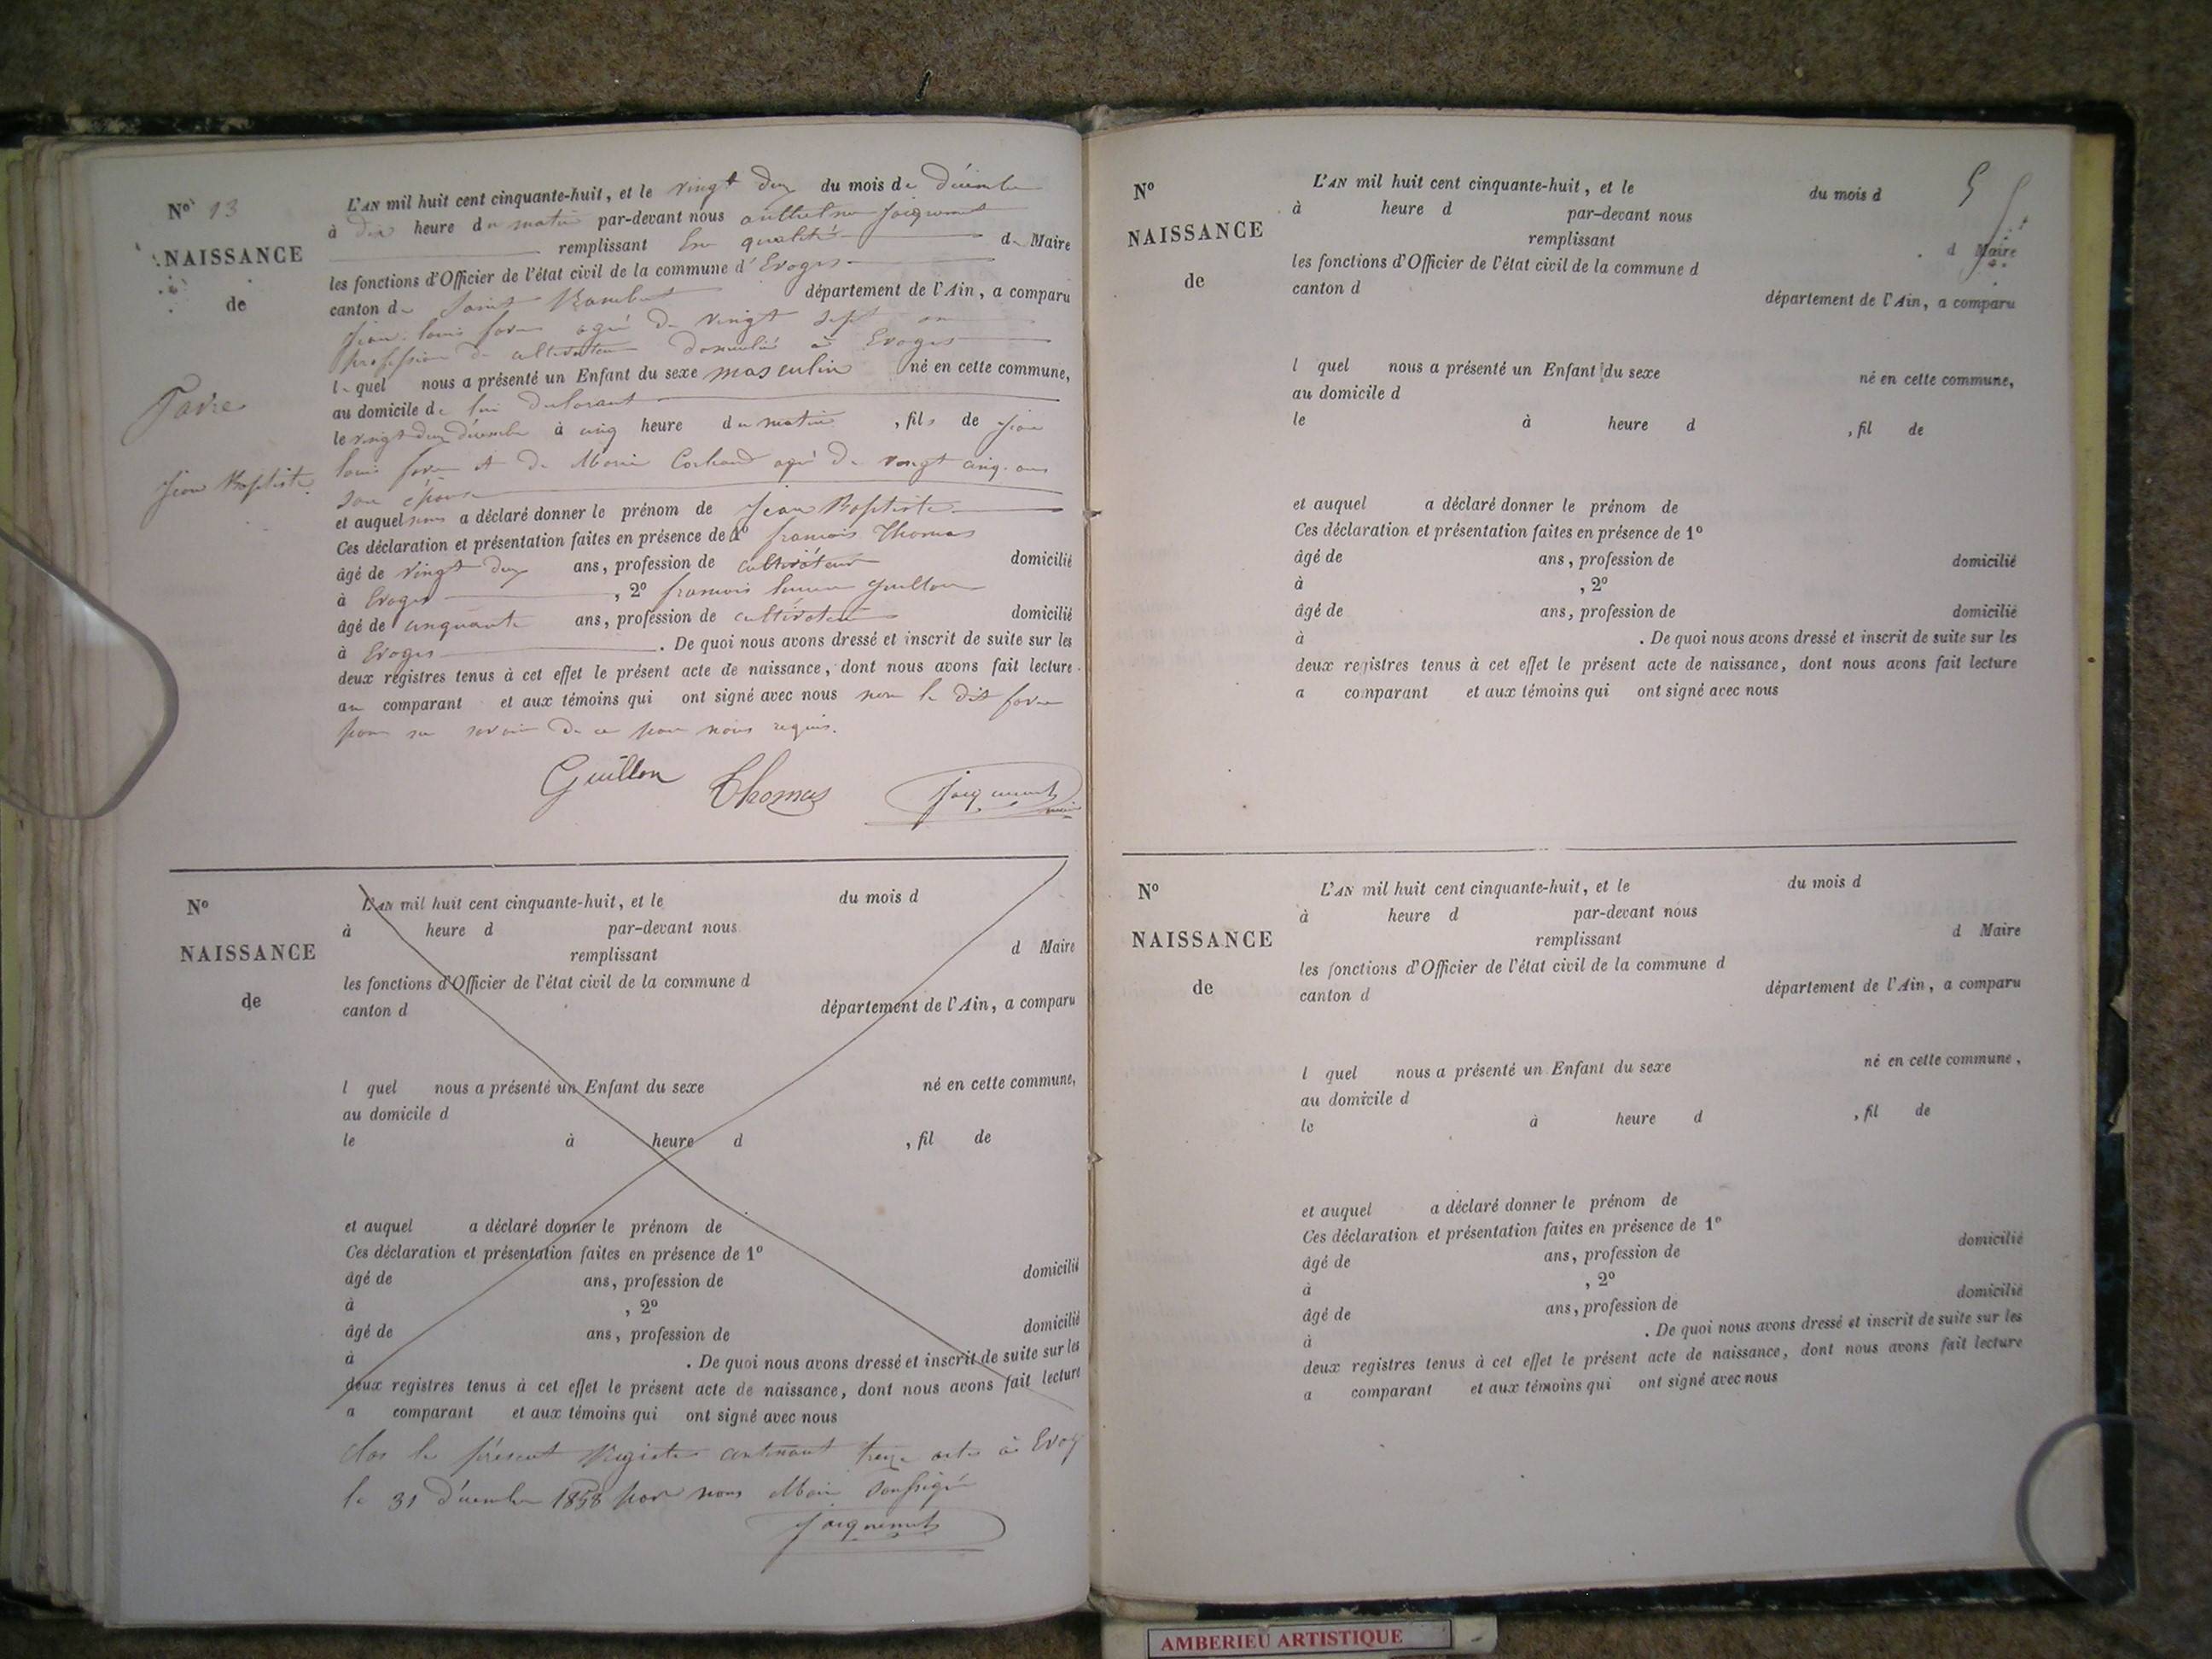 N° 13
NAISSANCE
de
Favre
Jean Baptiste
L'AN mil huit cent cinquante-huit, et le vingt deux du mois de décembre
à dix heure du matin par-devant nous anthelme Jacquemet
remplissant en qualité de Maire
les fonctions d'Officier de l'état civil de la commune d'Evoges
canton de Saint Rambert département de l'Ain, a comparu
Jean louis favre agé de vingt sept an
profession de cultivateur domicilié à Evoges
lequel nous a présenté un Enfant du sexe masculin né en cette commune,
au domicile de lui déclarant
le vingt deux décembre à cinq heure du matin, fils de Jean
louis favre et de Marie agé de vingt cinq ans
son épouse
et auquel nous a déclaré donner le prénom de Jean Baptiste
Ces déclaration et présentation faites en présence de 1° francois Thomas
âgé de vingt deux ans, profession de cultivateur domicilié
à Evoges, 2° francois Guillon
âgé de cinquante ans, profession de cultivateur domicilié
à Evoges. De quoi nous avons dressé et inscrit de suite sur les
deux registres tenus à cet effet le présent acte de naissance, dont nous avons fait lecture
au comparant et aux témoins qui ont signé avec nous non le dit favre
pour ne savoir de ce par nous requis.
Guillon Thomas Jacquemet maire
N°
NAISSANCE
de
L'AN mil huit cent cinquante-huit, et le du mois d
à heure d par-devant nous
remplissant d Maire
les fonctions d'Officier de l'état civil de la commune d
canton d département de l'Ain, a comparu
l quel nous a présenté un Enfant du sexe né en cette commune,
au domicile d
le à heure d , fil de
et auquel a déclaré donner le prénom de
Ces déclaration et présentation faites en présence de 1°
âgé de ans, profession de domicilié
à , 2°
âgé de ans, profession de domicilié
à . De quoi nous avons dressé et inscrit de suite sur les
deux registres tenus à cet effet le présent acte de naissance, dont nous avons fait lecture
a comparant et aux témoins qui ont signé avec nous
Clos le présent Registre contenant treize actes à Evog
le 31 décembre 1858 par nous Maire soussigné
Jacquemet
N°
NAISSANCE
de
L'AN mil huit cent cinquante-huit, et le du mois d
à heure d par-devant nous
remplissant d Maire
les fonctions d'Officier de l'état civil de la commune d
canton d département de l'Ain, a comparu
l quel nous a présenté un Enfant du sexe né en cette commune,
au domicile d
le à heure d , fil de
et auquel a déclaré donner le prénom de
Ces déclaration et présentation faites en présence de 1°
âgé de ans, profession de domicilié
à , 2°
âgé de ans, profession de domicilié
à . De quoi nous avons dressé et inscrit de suite sur les
deux registres tenus à cet effet le présent acte de naissance, dont nous avons fait lecture
a comparant et aux témoins qui ont signé avec nous
N°
NAISSANCE
de
L'AN mil huit cent cinquante-huit, et le du mois d
à heure d par-devant nous
remplissant d Maire
les fonctions d'Officier de l'état civil de la commune d
canton d département de l'Ain, a comparu
l quel nous a présenté un Enfant du sexe né en cette commune,
au domicile d
le à heure d , fil de
et auquel a déclaré donner le prénom de
Ces déclaration et présentation faites en présence de 1°
âgé de ans, profession de domicilié
à , 2°
âgé de ans, profession de domicilié
à . De quoi nous avons dressé et inscrit de suite sur les
deux registres tenus à cet effet le présent acte de naissance, dont nous avons fait lecture
a comparant et aux témoins qui ont signé avec nous
AMBERIEU ARTISTIQUE